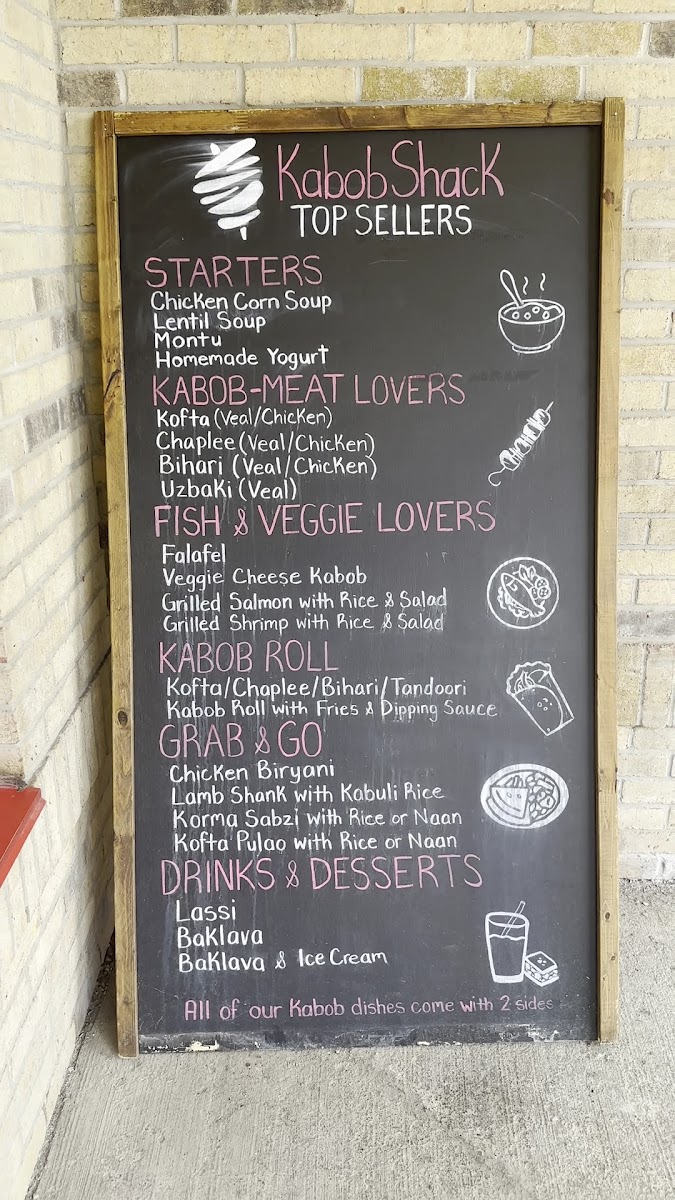 Kabob Shack
TOP SELLERS
STARTERS
Chicken Corn Soup
Lentil Soup
Montu
Homemade Yogurt
KABOB-MEAT LOVERS
Kofta (Veal/Chicken)
Chaplee (Veal/Chicken)
Bihari (Veal/Chicken)
Uzbaki (Veal)
FISH & VEGGIE LOVERS
Falafel
Veggie Cheese Kabob
Grilled Salmon with Rice & Salad
Grilled Shrimp with Rice & Salad
KABOB ROLL
Kofta/Chaplee/Bihari/Tandoori
Kabob Roll with Fries & Dipping Sauce
GRAB & GO
Chicken Biryani
Lamb Shank with Kabuli Rice
Korma Sabzi with Rice or Naan
Kofta Pulao with Rice or Naan
DRINKS & DESSERTS
Lassi
Baklava
Baklava & Ice Cream
All of our Kabob dishes come with 2 sides